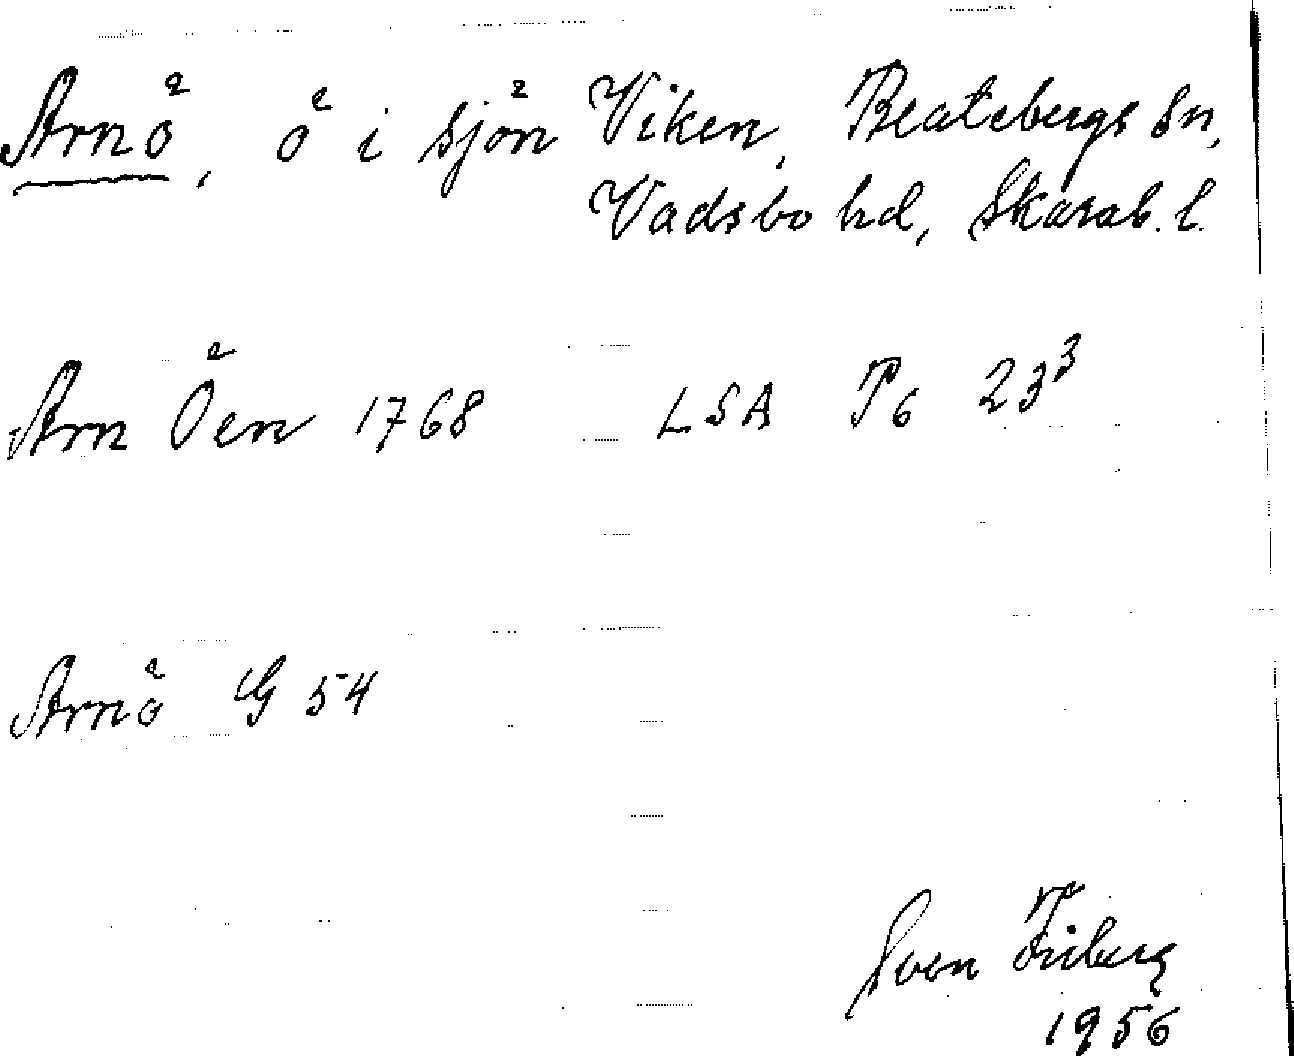 Arnö, ö i sjön Viken, Beatebergs sn,
Vadsbo hd, Skarab. l.
Arn Öen 1768 LSA P6 23³
Arnö G 54
Sven Friberg
1956